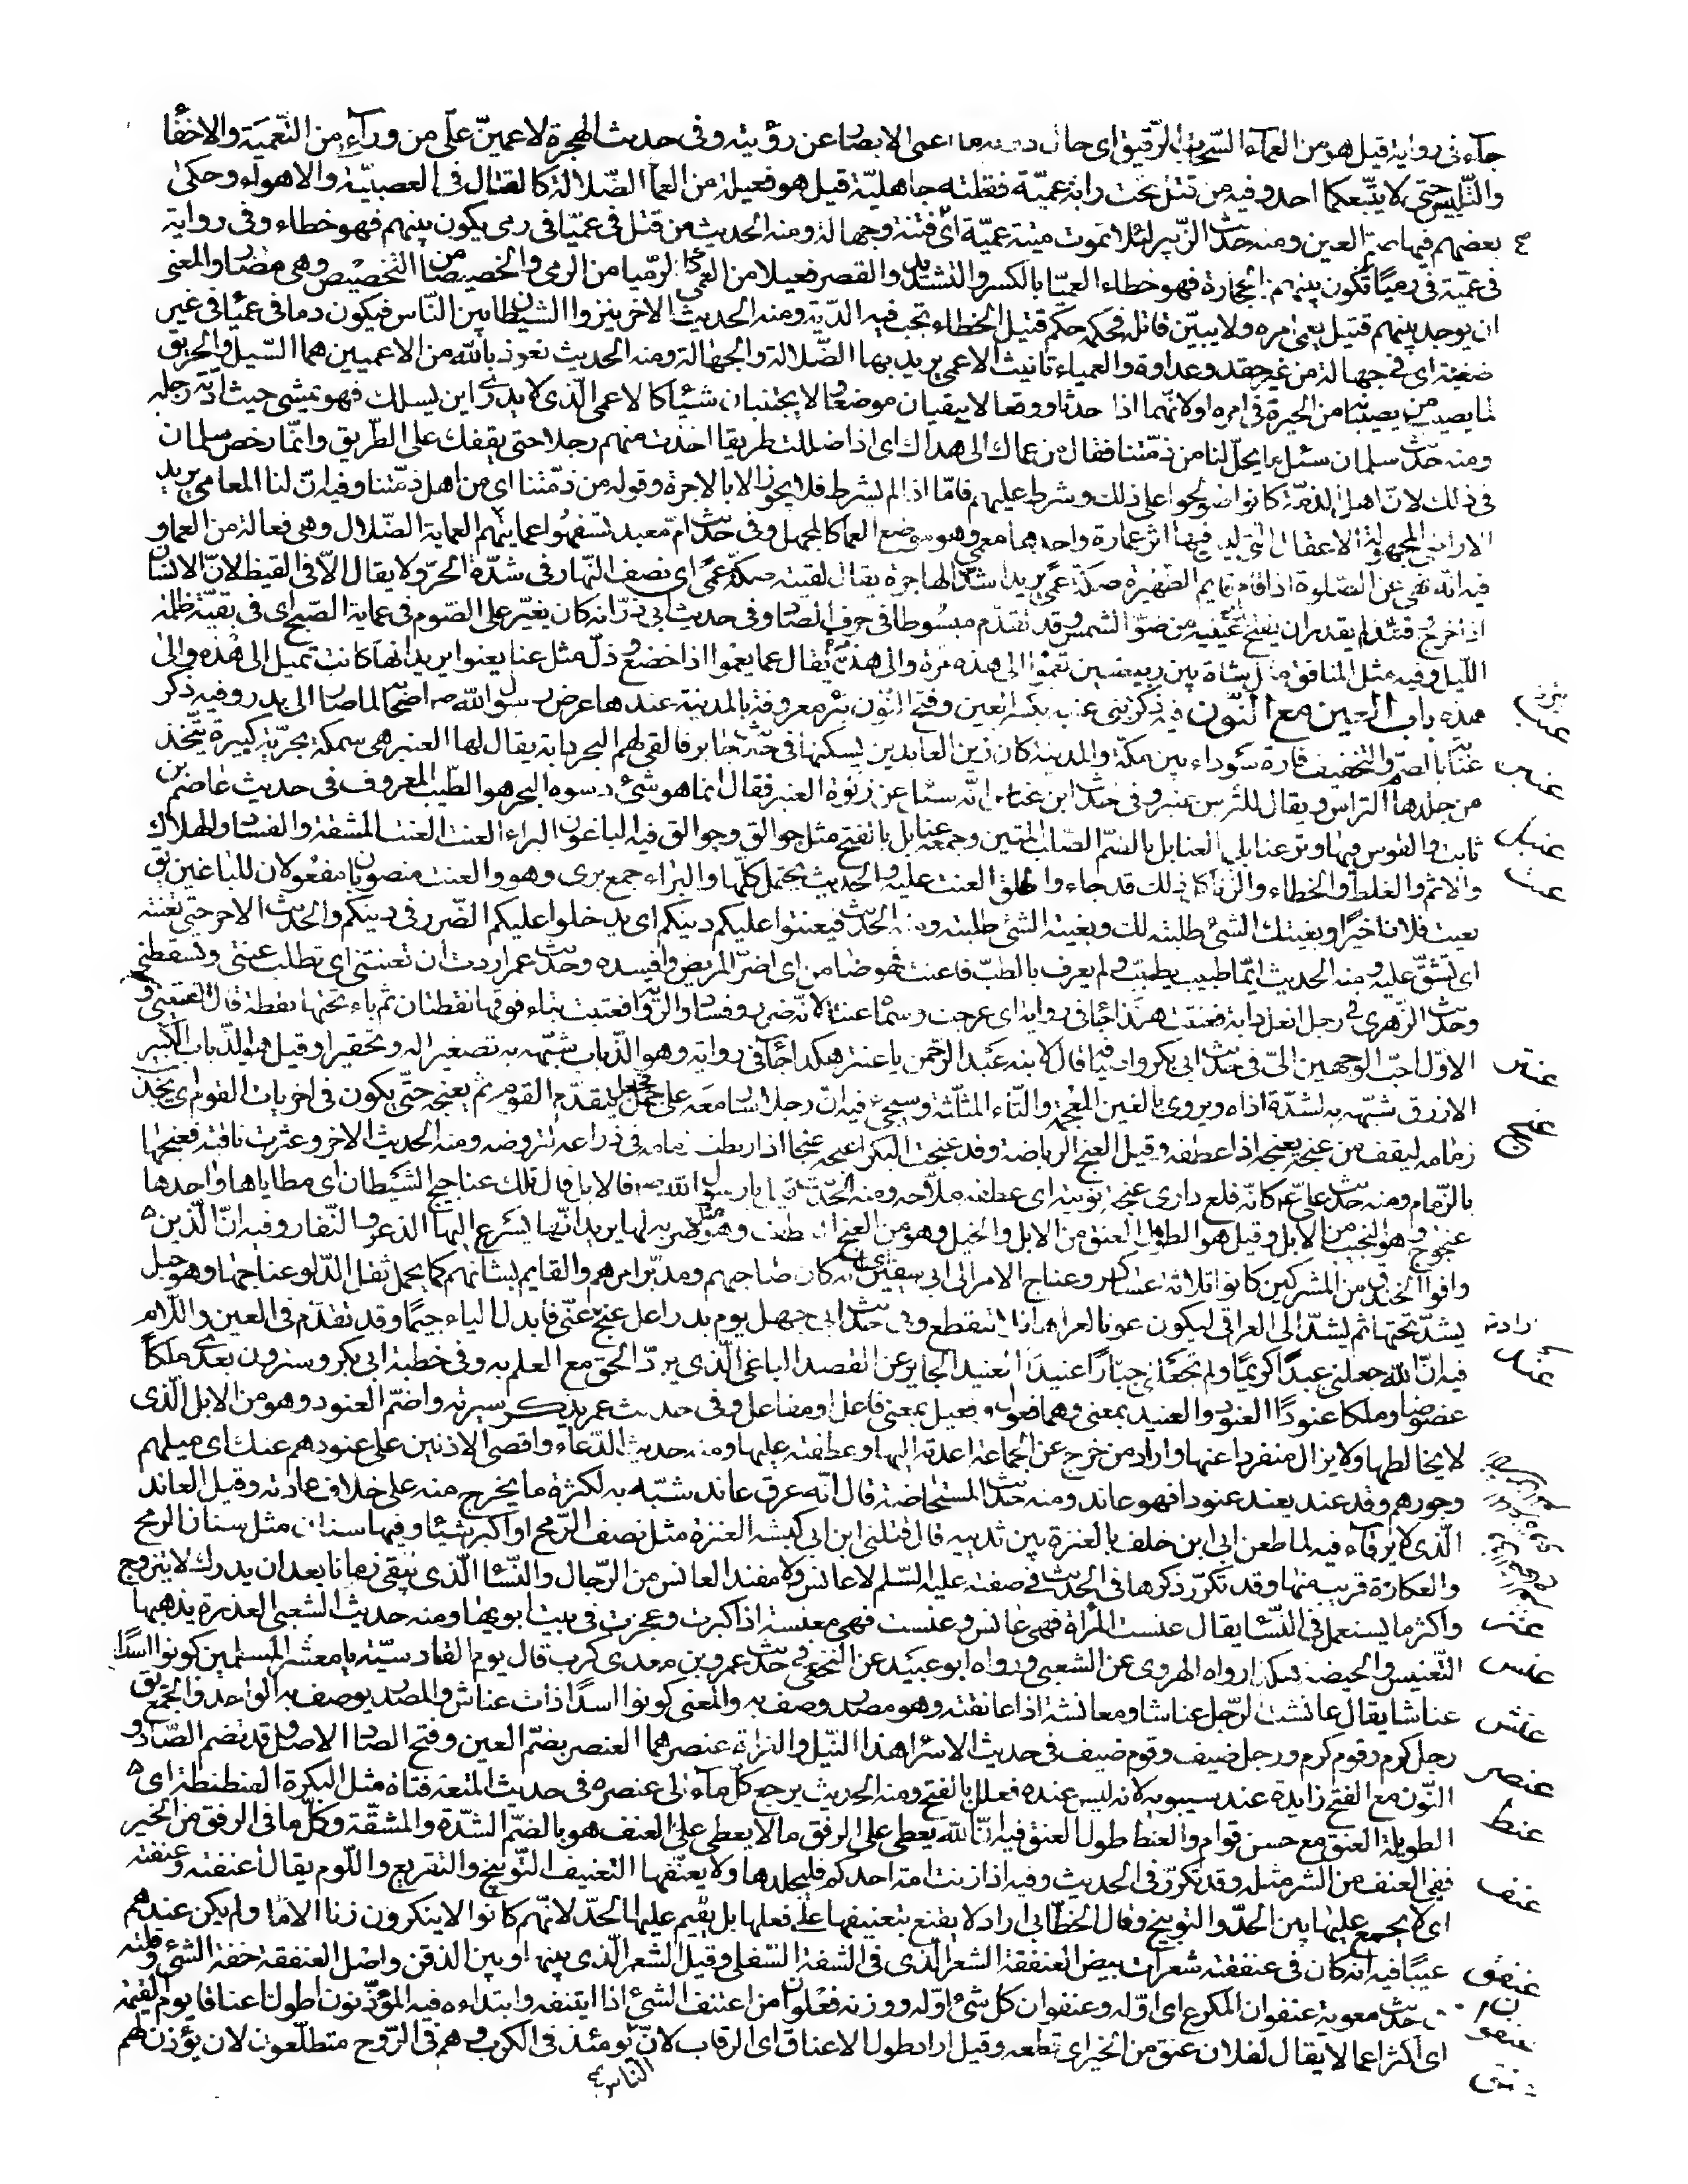 جآء فى رواية قيل هو من العمآء السّحاب الرّقيق اى حال دونه ما اعمى الابصار عن رؤيته وفى حديث الهجرة لاعمينّ على من ورآءى من التّعمية والاخفا
والتّلبيس حتى لا يتّبعكما احد وفيه من قتل تحت راية عميّة فقتلته جاهليّة قيل هو فعيلة من العمآ الضّلالة كالقتال فى العصبيّة والاهوآء وحكى
بعضهم فيها ضمّ العين ومنه حديث الزّبير لئلا نموت ميتة عميّة اى فتنة وجهالة ومنه الحديث من قتل فى عميّا فى رمى يكون بينهم فهو خطاء وفى رواية
فى عميّة فى رميّا تكون بينهم بالحجارة فهو خطاء العميّا بالكسر والتشديد والقصر فعيلا من العمى كالرّميا من الرمى والخصيصا من التخصيص وهى مصادر والمعنى
ان يوجد بينهم قتيل يعمى امره ولا يبيّن قاتله فحكمه حكم قتيل الخطاء تجب فيه الدّية ومنه الحديث الاخر ينزوا الشيطان بين النّاس فيكون دما فى عميّا فى غير
ضغينة اى فى جهالة من غير حقد وعداوة والعمياء تانيث الاعمى يريد بها الضّلالة والجهالة ومنه الحديث نعوذ بالله من الاعميين هما السّيل والحريق
لما يصيب من يصيبانه من الحيرة فى امره او لانّهما اذا حدثا ووقعا لا يبقيان موضعا ولا يجتنبان شيئا كالاعمى الّذى لا يدرى اين يسلك فهو يمشى حيث ادّته رجله
ومنه حديث سلمان سئل ما يحلّ لنا من ذمّتنا فقال من عماك الى هداك اى اذا ضللت طريقا اخذت منهم رجلا حتى يقفك على الطّريق وانّما رخص سلمان
فى ذلك لانّ اهل الذمّة كانوا صولحوا على ذلك وشرط عليهم فامّا اذا لم يشرط فلا يجوز الا بالاجرة وقوله من ذمّتنا اى من اهل ذمّتنا وفيه انّ لنا المعامى يريد
الاراضى المجهولة الاغفال التى ليس فيها اثر عمارة واحدها معمى وهو موضع العما كالمجهل وفى حديث امّ معبد تسفّهوا عمايتهم العماية الضّلال وهى فعالة من العما و
فيه انّه نهى عن الصّلوة اذا قام قايم الظهيرة صكّة عمىّ يريد اشدّ الهاجرة يقال لقيته صكّة عمىّ اى نصف النّهار فى شدّة الحرّ ولا يقال الّا فى القيظ لانّ الانسان
اذا خرج وقته لم يقدر ان يفتح عينيه من ضوّ الشمس وقد تقدّم مبسوطا فى حرف الصّاد وفى حديث ابى ذرّ انه كان يغير على الصّوم فى عماية الصّبح اى فى بقيّة ظلمة
اللّيل وفيه مثل المنافق مثل شاة بين ربيضين تعموا الى هذه مرّة والى هذه مرّة يقال عما يعموا اذا خضع وذلّ مثل عنا يعنوا يريد انّها كانت تميل الى هذه والى
هذه باب العين مع النّون فيه ذكر بئر عنبه بكسر العين وفتح النّون بئر معروفة بالمدينة عندها عرض رسول الله صم اصحابه لما صار الى بدر وفيه ذكر
عنابه بالضمّ والتخفيف قارة سوداء بين مكّة والمدينة كان زين العابدين يسكنها فى حديث جابر فالقى لهم البحر دابة يقال لها العنبر هى سمكة بحريّة كبيرة يتّخذ
من جلدها التراس ويقال للترس عنبر وفى حديث ابن عبّاس انّه سئل عن زكوة العنبر فقال انما هو شىء دسره البحر هو الطّيب المعروف فى حديث عاصم بن
ثابت والقوس فيها وتر عنابل العنابل بالضمّ الصّلب المتين وجمعه عنابل بالفتح مثل جوالق وجوالق فيه الباغون البراء العنت العنت المشقة والفساد والهلاك
والاثم والغلط والخطاء والزّنا كلّ ذلك قد جاء واطلق العنت عليه والحديث يحتمل كلّها والبراء جمع برى وهو والعنت منصوبان مفعولان للباغين يق
بغيت فلانا خيرًا وبغيتك الشئ طلبته لك وبغيته الشئ طلبته ومنه الحديث فيعنتوا عليكم دينكم اى يدخلوا عليكم الضّرر فى دينكم والحديث الاخر حتى تعنته
اى تشقّ عليه ومنه الحديث ايّما طبيب تطبّب ولم يعرف بالطبّ فاعنت فهو ضامن اى اضرّ المريض وافسده وحديث عمر اردت ان تعنتنى اى تطلب عنتى وتسقطنى
وحديث الزّهرى فى رجل انعل دابة فعنتت هكذا جآء فى رواية اى عرجت وسمّاه عنتا لانّه ضرر وفساد والرّواية فعتبت بتاء فوقها نقطتان ثم باء تحتها نقطة قال القتيبى و
الاوّل احبّ الوجهين الىّ فى حديث ابى بكر واضيافه قال لابنه عبد الرّحمن يا عنتر هكذا جآء فى رواية وهو الذّباب شبّهه به تصغيرا له وتحقيرا وقيل هو الذّباب الكبير
الازرق شبّهه به لشدّة اذاه ويروى بالغين المعجمة والثآء المثلّثة وسيجئ فيه انّ رجلا سار معه على جمل فجعل يتقدّم القوم ثم يعنجه حتّى يكون فى اخريات القوم اى يجذب
زمامه ليقف من عنجه يعنجه اذا عطفه وقيل العنج الرياضة وقد عنجت البكر اعنجه عنجا اذا ربطت زمامه فى ذراعه لتروضه ومنه الحديث الاخر وعثرت ناقته فعنجها
بالزّمام ومنه حديث علىّ عم كانّه قلع دارى عنجه نوتيّه اى عطفه ملّاحه ومنه الحديث قيل يا رسول الله صم فالابل قال تلك عناجيج الشيطان اى مطاياها واحدها
عنجوج وهو النجيب من الابل وقيل هو الطويل العنق من الابل والخيل وهو من العنج العطف وهو مثل ضربه لها يريد انّها يسرع اليها الذعر والنّفار وفيه انّ الّذين
وافوا الخندق من المشركين كانوا ثلاثة عساكر وعناج الامر الى ابى سفين اى انه كان صاحبهم ومدبّر امرهم والقايم بشانهم كما يحمل ثقل الدّلو عناجها وهو حبل
يشدّ تحتها ثم يشدّ الى العراقى ليكون عونا لعراها فلا تنقطع وفى حديث ابى جهل يوم بدر اعل عنج اى عنّى فابدل الياء جيمًا وقد تقدّم فى العين واللّام
فيه انّ الله جعلنى عبدًا كريمًا ولم يجعلنى جبّارًا عنيدًا العنيد الجاير عن القصد الباغى الّذى يردّ الحق مع العلم به وفى خطبة ابى بكر وسترون بعدى ملكًا
عضوضا وملكا عنودًا العنود والعنيد بمعنى وهما فعول وفعيل بمعنى فاعل او مفاعل وفى حديث عمر يذكر سيرته واضمّ العنود وهو من الابل الّذى
لا يخالطها ولا يزال منفردا عنها واراد من خرج عن الجماعة اعدته اليها وعطفته عليها ومنه حديث الدّعاء واقصى الادنين على عنودهم عنك اى ميلهم
وجورهم وقد عند يعند عنودا فهو عاند ومنه حديث المستحاضة قال انّه عرق عاند شبّه به لكثرة ما يخرج منه على خلاف عادته وقيل العاند
الّذى لا يرقآء فيه لما طعن ابى ابن خلف بالعنزة بين ثدييه قال قتلنى ابن ابى كبشة العنزة مثل نصف الرّمح او اكبر شيئا وفيها سنان مثل سنان الرمح
والعكازة قريب منها وقد تكرّر ذكرها فى الحديث فى صفته عليه السّلم لا عانس ولا مفند العانس من الرّجال والنّسا الّذى يبقى زمانا بعد ان يدرك لا يتزوج
واكثر ما يستعمل فى النّسا يقال عنست المرأة فهى عانس وعنست فهى معنسة اذا كبرت وعجزت فى بيت ابويها ومنه حديث الشعبى العذرة يذهبها
التّعنيس والحيضة هكذا رواه الهروى عن الشعبى ورواه ابو عبيد عن النخعى فى حديث عمرو بن معدى كرب قال يوم القادسيّة يا معشر المسلمين كونوا اسدًا
عناشا يقال عانشت الرّجل عناشا ومعانشة اذا عانقته وهو مصدر وصف به والمعنى كونوا اسدًا ذات عناش والمصدر يوصف به الواحد والجمع يق
رجل كرم وقوم كرم ورجل ضيف وقوم ضيف فى حديث الاسرا هذا النّيل والفراة عنصرهما العنصر بضمّ العين وفتح الصاد الاصل وقد تضم الصّاد و
النّون مع الفتح زايدة عند سيبويه لانه ليس عنده فعلل بالفتح ومنه الحديث يرجع كلّ مآء الى عنصره فى حديث المتعة فتاة مثل البكرة العنطنطة اى
الطويلة العنق مع حسن قوام والعنط طول العنق فيه انّ الله يعطى على الرفق ما لا يعطى على العنف هو بالضمّ الشدّة والمشقّة وكلّ ما فى الرفق من الخير
ففى العنف من الشر مثله وقد تكرّر فى الحديث وفيه اذا زنت امة احدكم فليجلدها ولا يعنّفها التعنيف التّوبيخ والتقريع واللّوم يقال اعنفته وعنفته
اى لا يجمع عليها بين الحدّ والتوبيخ وقال الخطّابى اراد لا يقنع بتعنيفها على فعلها بل يقيم عليها الحدّ لانّهم كانوا لا ينكرون زنا الاما ولم يكن عندهم
عيبًا فيه انه كان فى عنفقته شعرات بيض العنفقة الشعر الّذى فى الشفة السّفلى وقيل الشعر الّذى بينها وبين الذقن واصل العنفقة خفة الشئ وقلته
حديث معوية عنفوان المكرع اى اوّله وعنفوان كل شئ اوّله ووزنه فعلوان من اعتنف الشئ اذا ايتنفه وابتداءه فيه المؤذّنون اطول اعناقا يوم القيمة
اى اكثر اعمالا يقال لفلان عنق من الخير اى قطعة وقيل اراد طول الاعناق اى الرقاب لانّ يومئذ فى الكرب وهم فى الرّوح متطلّعون لان يؤذن لهم
الناس
عنب
عنبر
عنبل
عنت
عنتر
عنج
عند
عنز
عنس
عنش
عنصر
عنط
عنف
عنفق